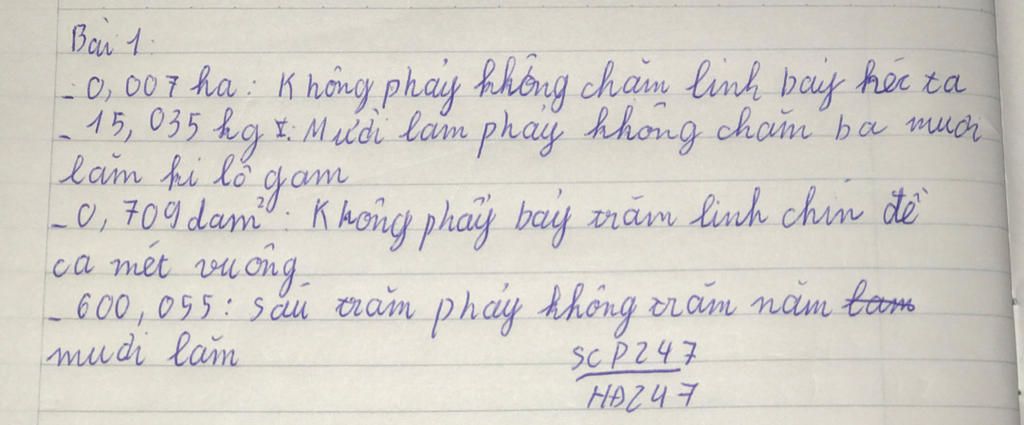 Bài 1:
- 0,007 ha: Không phảy không chăm linh bảy héc ta
- 15,035 kg: Mười lăm phảy không chăm ba mươi
lăm ki lô gam
- 0,709 dam²: Không phẩy bảy trăm linh chín đề
ca mét vuông
- 600,055: Sáu trăm phảy không trăm năm lam
mươi lăm
SCP247
HĐ247